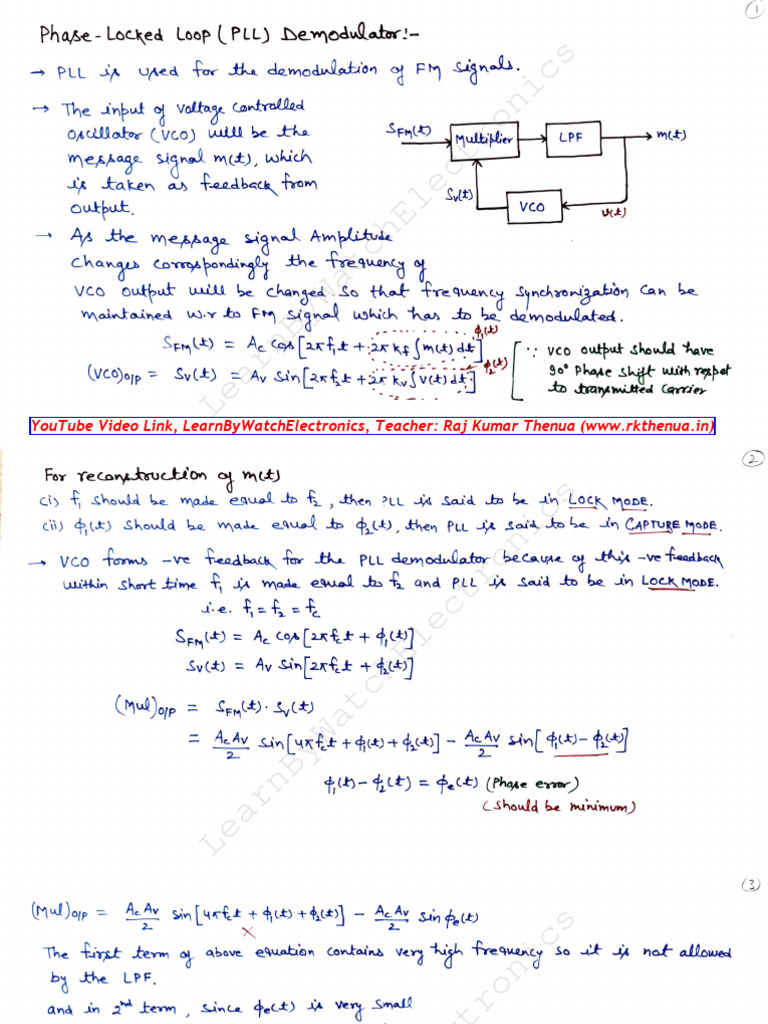 ①
Phase-Locked Loop (PLL) Demodulator:-
→ PLL is used for the demodulation of FM signals.
→ The input of voltage controlled
oscillator (VCO) will be the
message signal m(t), which
is taken as feedback from
output.
S_FM(t)
Multiplier
LPF
m(t)
S_v(t)
VCO
v(t)
→ As the message signal Amplitude
changes corrospondingly the frequency of
VCO output will be changed so that frequency synchronization can be
maintained w.r to FM signal which has to be demodulated.
S_FM(t) = A_c cos[2πf₁t + 2πk_f∫m(t)dt] ϕ₁(t)
(VCO)_O/P = S_v(t) = A_v sin[2πf₂t + 2πk_v∫v(t)dt] ϕ₂(t)
∵ VCO output should have
90° Phase shift with respet
to transmitted carrier
YouTube Video Link, LearnByWatchElectronics, Teacher: Raj Kumar Thenua (www.rkthenua.in)
②
For reconstruction of m(t)
(i) f₁ should be made equal to f₂, then PLL is said to be in LOCK MODE.
(ii) ϕ₁(t) should be made equal to ϕ₂(t), then PLL is said to be in CAPTURE MODE.
→ VCO forms -ve feedback for the PLL demodulator because of this -ve feedback
within short time f₁ is made equal to f₂ and PLL is said to be in LOCK MODE.
i.e. f₁ = f₂ = f_c
S_FM(t) = A_c cos[2πf_ct + ϕ₁(t)]
S_v(t) = A_v sin[2πf_ct + ϕ₂(t)]
(Mul)_O/P = S_FM(t)·S_v(t)
= A_cA_v/2 sin[4πf_ct + ϕ₁(t) + ϕ₂(t)] - A_cA_v/2 sin[ϕ₁(t) - ϕ₂(t)]
ϕ₁(t) - ϕ₂(t) = ϕ_e(t) (Phase error)
(should be minimum)
③
(Mul)_O/P = A_cA_v/2 sin[4πf_ct + ϕ₁(t) + ϕ₂(t)] - A_cA_v/2 sin ϕ_e(t)
×
The first term of above equation contains very high frequency so it is not allowed
by the LPF.
and in 2nd term, since ϕ_e(t) is very small
LearnByWatchElectronics
LearnByWatchElectronics
ctronics